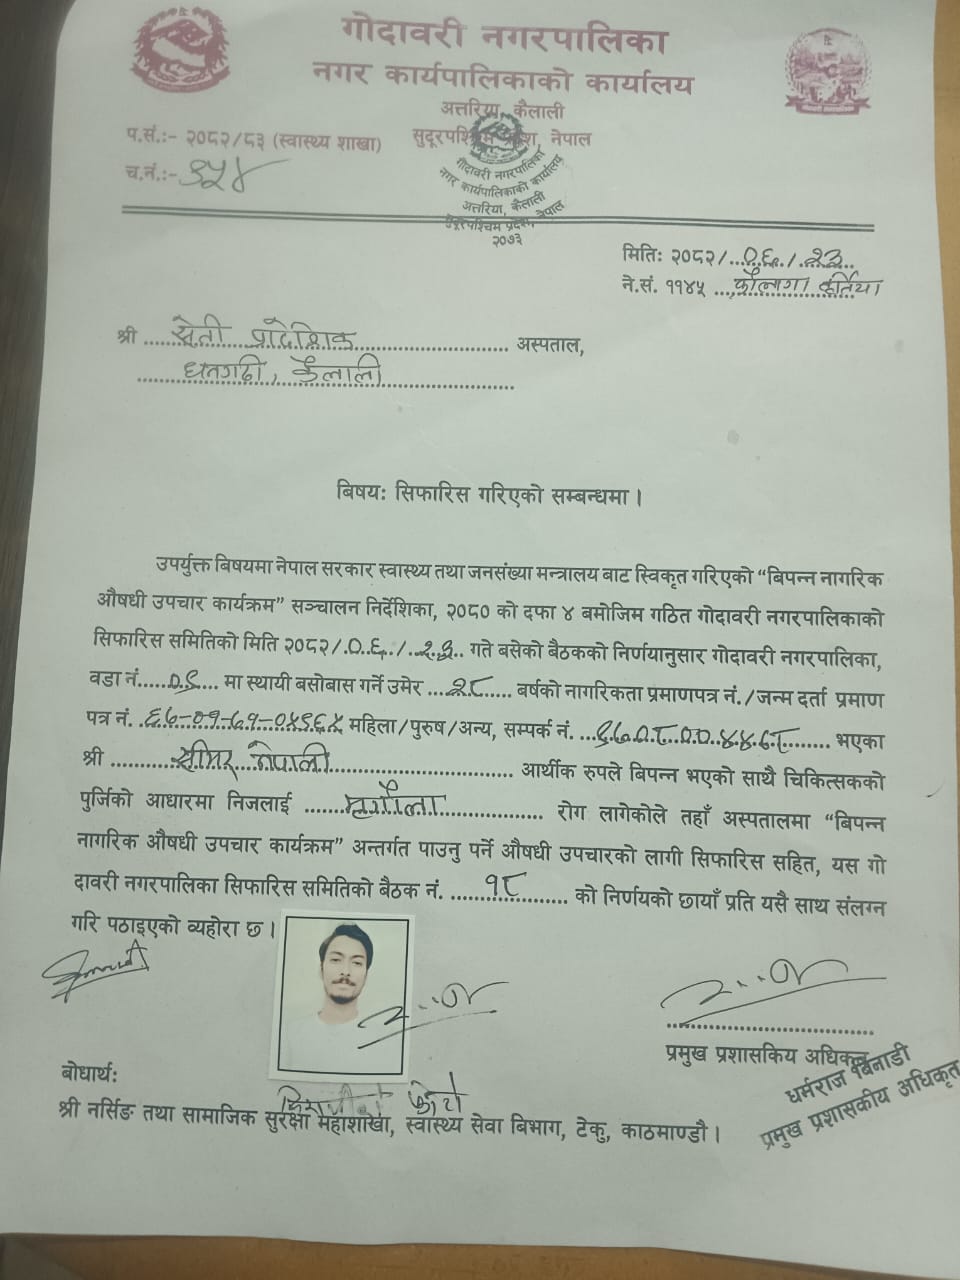 गोदावरी नगरपालिका
नगर कार्यपालिकाको कार्यालय
अत्तरिया, कैलाली
सुदूरपश्चिम प्रदेश, नेपाल
प.सं.:- २०८२/८३ (स्वास्थ्य शाखा)
च.नं.:-
गोदावरी नगरपालिका
नगर कार्यपालिकाको कार्यालय
अत्तरिया, कैलाली
सुदूरपश्चिम प्रदेश, नेपाल
२०७३
मितिः २०८२/...०६./.२३..
ने.सं. ११४५ ...
श्री ......सेती प्रादेशिक...................... अस्पताल,
.......धनगढी, कैलाली..................
बिषयः सिफारिस गरिएको सम्बन्धमा ।
उपर्युक्त बिषयमा नेपाल सरकार स्वास्थ्य तथा जनसंख्या मन्त्रालय बाट स्विकृत गरिएको “बिपन्न नागरिक
औषधी उपचार कार्यक्रम” सञ्चालन निर्देशिका, २०८० को दफा ४ बमोजिम गठित गोदावरी नगरपालिकाको
सिफारिस समितिको मिति २०८२/.०६./.२३.. गते बसेको बैठकको निर्णयानुसार गोदावरी नगरपालिका,
वडा नं..... मा स्थायी बसोबास गर्ने उमेर ...२८...... बर्षको नागरिकता प्रमाणपत्र नं./जन्म दर्ता प्रमाण
पत्र नं. महिला/पुरुष/अन्य, सम्पर्क नं. भएका
श्री ............ नेपाली.................................. आर्थीक रुपले बिपन्न भएको साथै चिकित्सकको
पुर्जिको आधारमा निजलाई ......मृगौला............... रोग लागेकोले तहाँ अस्पतालमा “बिपन्न
नागरिक औषधी उपचार कार्यक्रम” अन्तर्गत पाउनु पर्ने औषधी उपचारको लागी सिफारिस सहित, यस गो
दावरी नगरपालिका सिफारिस समितिको बैठक नं. ......१८........... को निर्णयको छायाँ प्रति यसै साथ संलग्न
गरि पठाइएको व्यहोरा छ ।
प्रमुख प्रशासकिय अधिकृत
धर्मराज
प्रमुख प्रशासकीय अधिकृत
बोधार्थः
फोटो
श्री नर्सिङ तथा सामाजिक सुरक्षा महाशाखा, स्वास्थ्य सेवा बिभाग, टेकु, काठमाण्डौ ।